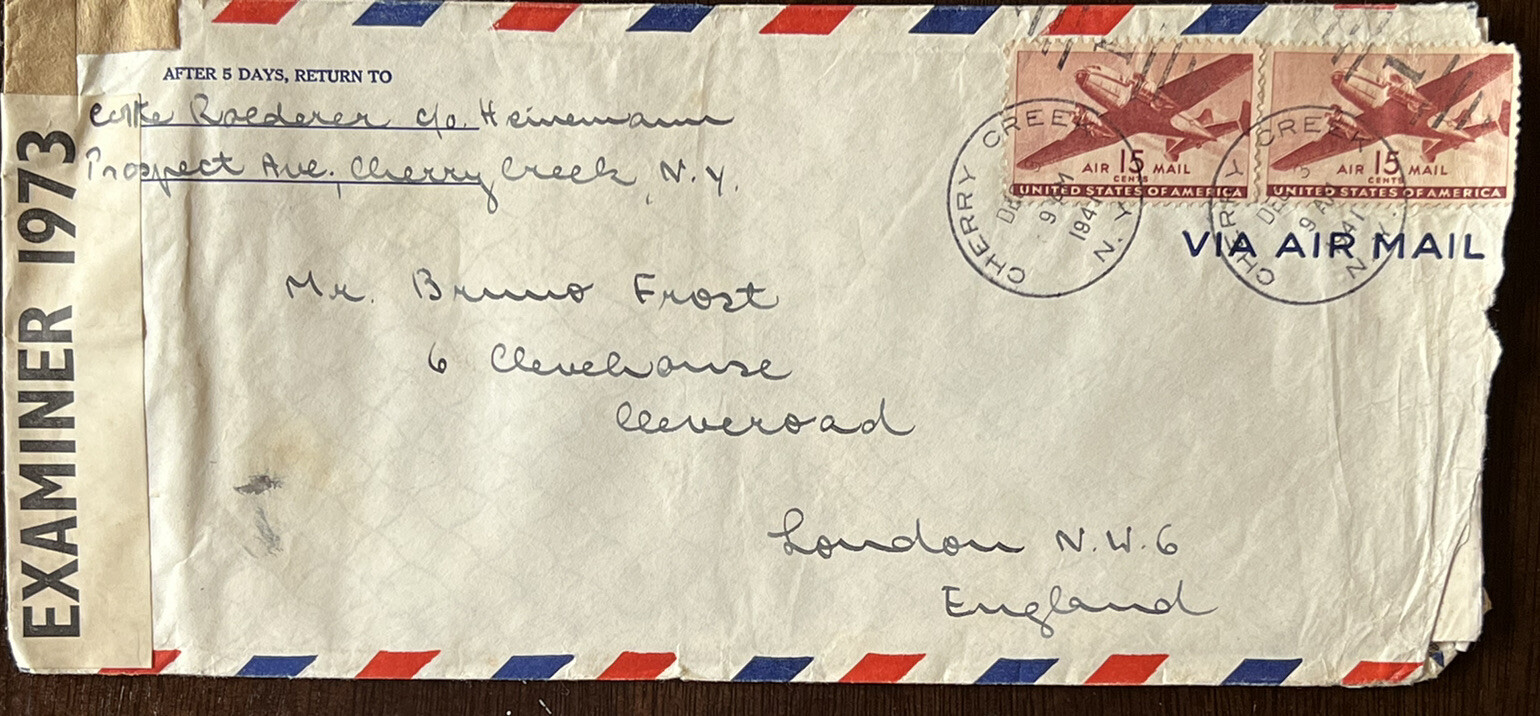 AFTER 5 DAYS, RETURN TO
Roederer c/o. Heinemann
Prospect Ave. Cherry Creek, N.Y.
EXAMINER 1973
AIR 15 MAIL
CENTS
UNITED STATES OF AMERICA
AIR 15 MAIL
CENTS
UNITED STATES OF AMERICA
CHERRY CREEK N.Y.
9 AM
1941
CHERRY CREEK N.Y.
DEC
9 AM
1941
VIA AIR MAIL
Mr. Bruno Frost
6 Clevehouse
Cleveroad
London N.W.6
England